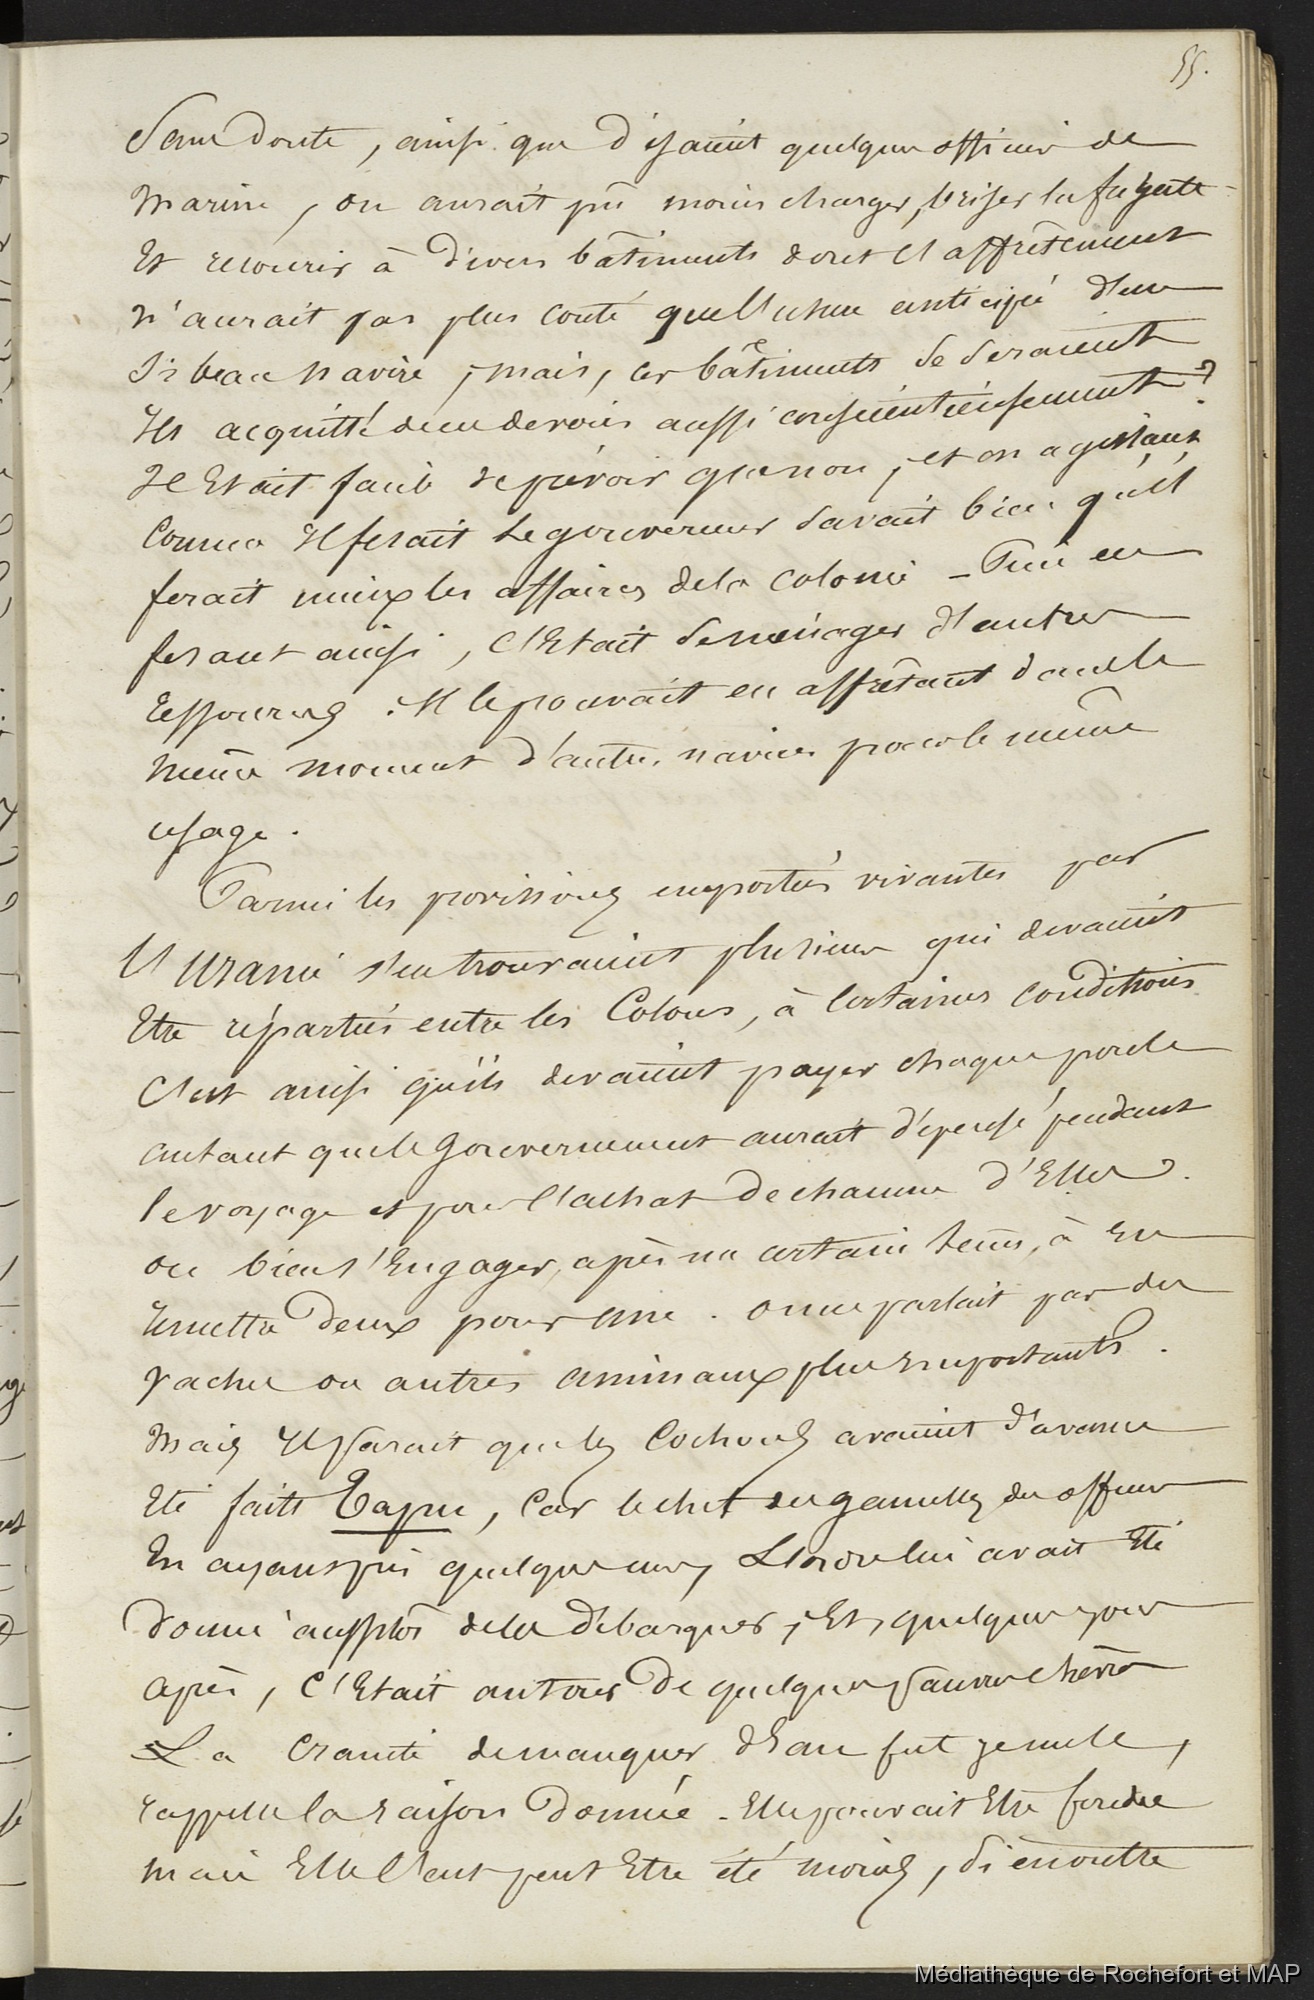 55.
Sans doute, ainsi que disaient quelques officiers de
Marine, on aurait pu moins charger, briser la frégate
Et recourir à divers bâtiments dont l'affrêtement
n'aurait pas plus couté que l'usure anticipé d'un
si beau navire ; mais, ces bâtiments se seraient
Ils acquitté de ces devoirs aussi consciencieusement ?
Il Etait facile de prévoir que non, et en agissant
Comme Il fesait le gouverneur savait bien qu'il
ferait mieux les affaires de la Colonie – Puis en
fesant ainsi, C'Etait se ménager d'autres
Ressources. Il le pouvait en affrêtant dans le
même moment d'autres navires pour le même
usage.
Parmi les provisions emportées vivantes par
l'Uranie s'en trouvaient plusieurs qui devaient
Etre réparties entre les Colons, à Certaines conditions
C'est ainsi qu'ils devaient payer chaque poule
autant que le Gouvernement aurait dépensé pendant
le voyage et pour l'achat de chacune d'Elles.
ou bien s'Engager, après un certain tems, à En
Remettre deux pour une. on ne parlait pas des
vaches ou autres animaux plus importants.
Mais Il parait que les Cochons avaient d'avance
Eté faits Tapu, Car le chef des gamelles des officiers
En ayant pris quelques uns, L'ordre lui avait Eté
donné aussitôt de les débarquer ; Et, quelques jours
après, C'Etait au tour de quelques pauvres chèvres
La crainte de manquer d'Eau fut je me le
rappelle la raison donnée. Elle pouvait Etre fondée
mais Elle l'eut peut Etre été moins, si en outre
Médiathèque de Rochefort et MAP